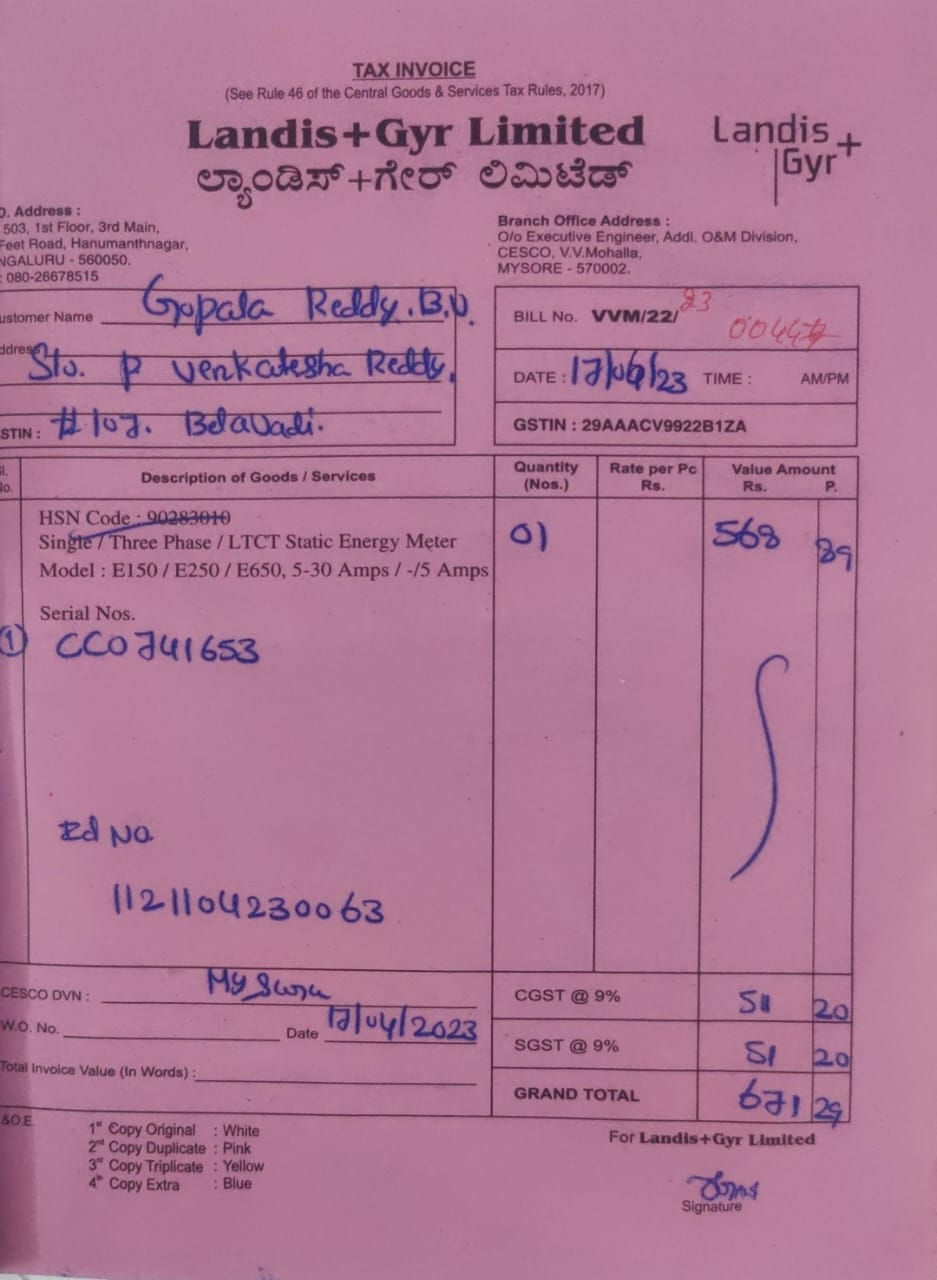 TAX INVOICE
(See Rule 46 of the Central Goods & Services Tax Rules, 2017)
Landis+Gyr Limited
ಲ್ಯಾಂಡಿಸ್+ಗೇರ್ ಲಿಮಿಟೆಡ್
Landis+
Gyr
O. Address :
503, 1st Floor, 3rd Main,
Feet Road, Hanumanthnagar,
NGALURU - 560050.
: 080-26678515
Branch Office Address :
O/o Executive Engineer, Addl. O&M Division,
CESCO, V.V.Mohalla,
MYSORE - 570002.
ustomer Name Gopala Reddy.B.V.
ddress S/o. P Venkatesha Reddy,
STIN : #107. Belavadi.
BILL No. VVM/22/23
DATE : 17/04/23 TIME : AM/PM
GSTIN : 29AAACV9922B1ZA
l. No. Description of Goods / Services Quantity (Nos.) Rate per Pc Rs. Value Amount Rs. P.
HSN Code : 90283010
Single / Three Phase / LTCT Static Energy Meter 01 568 89
Model : E150 / E250 / E650, 5-30 Amps / -/5 Amps
Serial Nos.
① CC0741653
Ed No
1121104230063
CESCO DVN : Mysuru
W.O. No. Date 17/04/2023
Total Invoice Value (In Words) :
CGST @ 9% 51 20
SGST @ 9% 51 20
GRAND TOTAL 671 29
&O.E.
1st Copy Original : White
2nd Copy Duplicate : Pink
3rd Copy Triplicate : Yellow
4th Copy Extra : Blue
For Landis+Gyr Limited
Signature